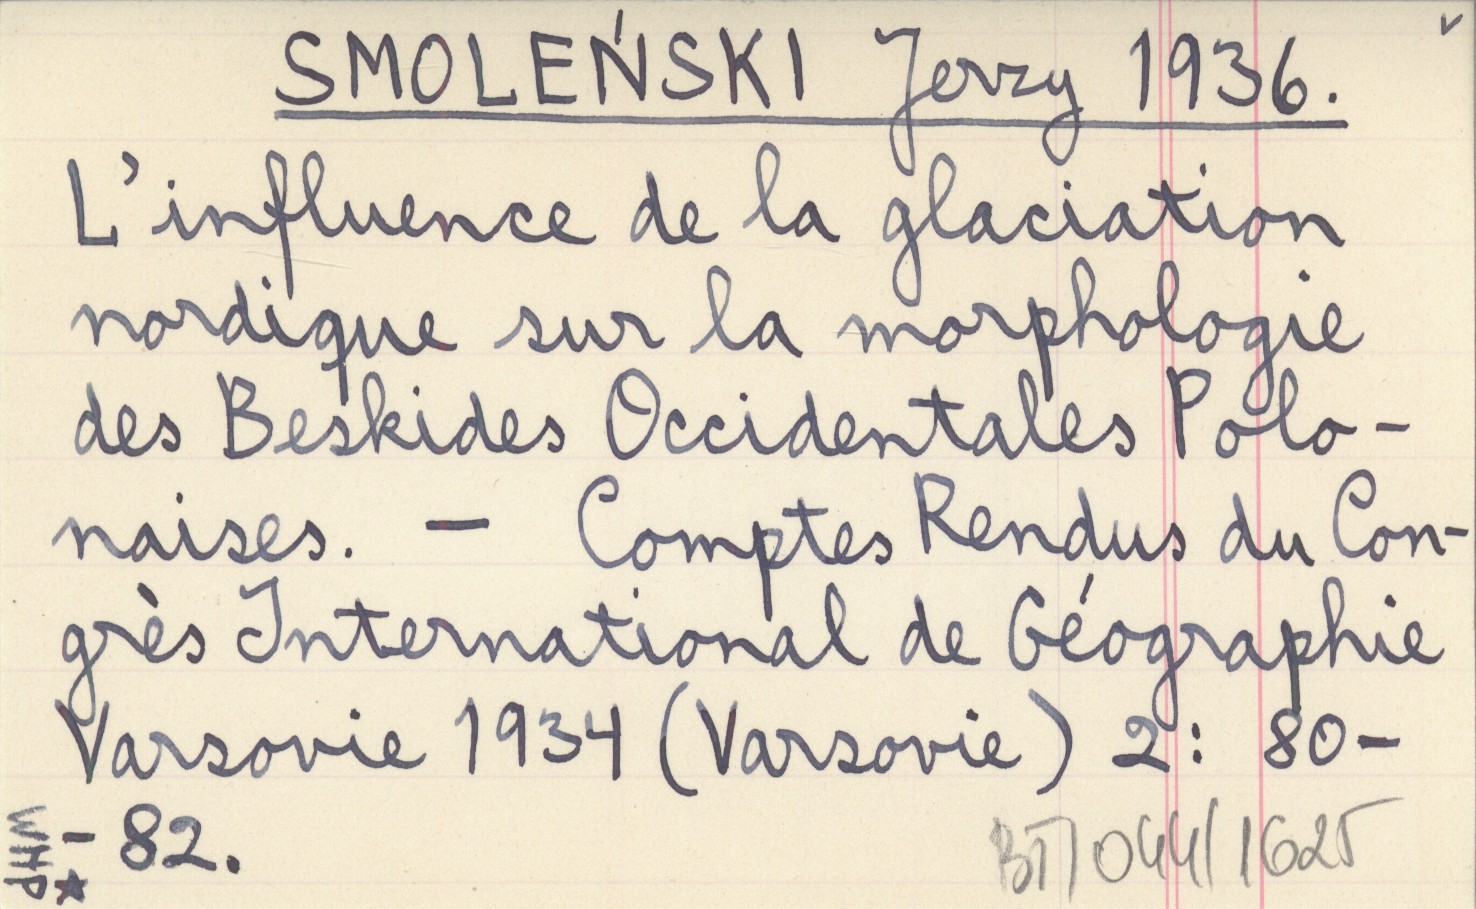 SMOLEŃSKI Jerzy 1936.
L'influence de la glaciation
nordique sur la morphologie
des Beskides Occidentales Polo-
naises. — Comptes Rendus du Con-
grès International de Géographie
Varsovie 1934 (Varsovie) 2: 80-
-82.
WMP
BT/044/1625